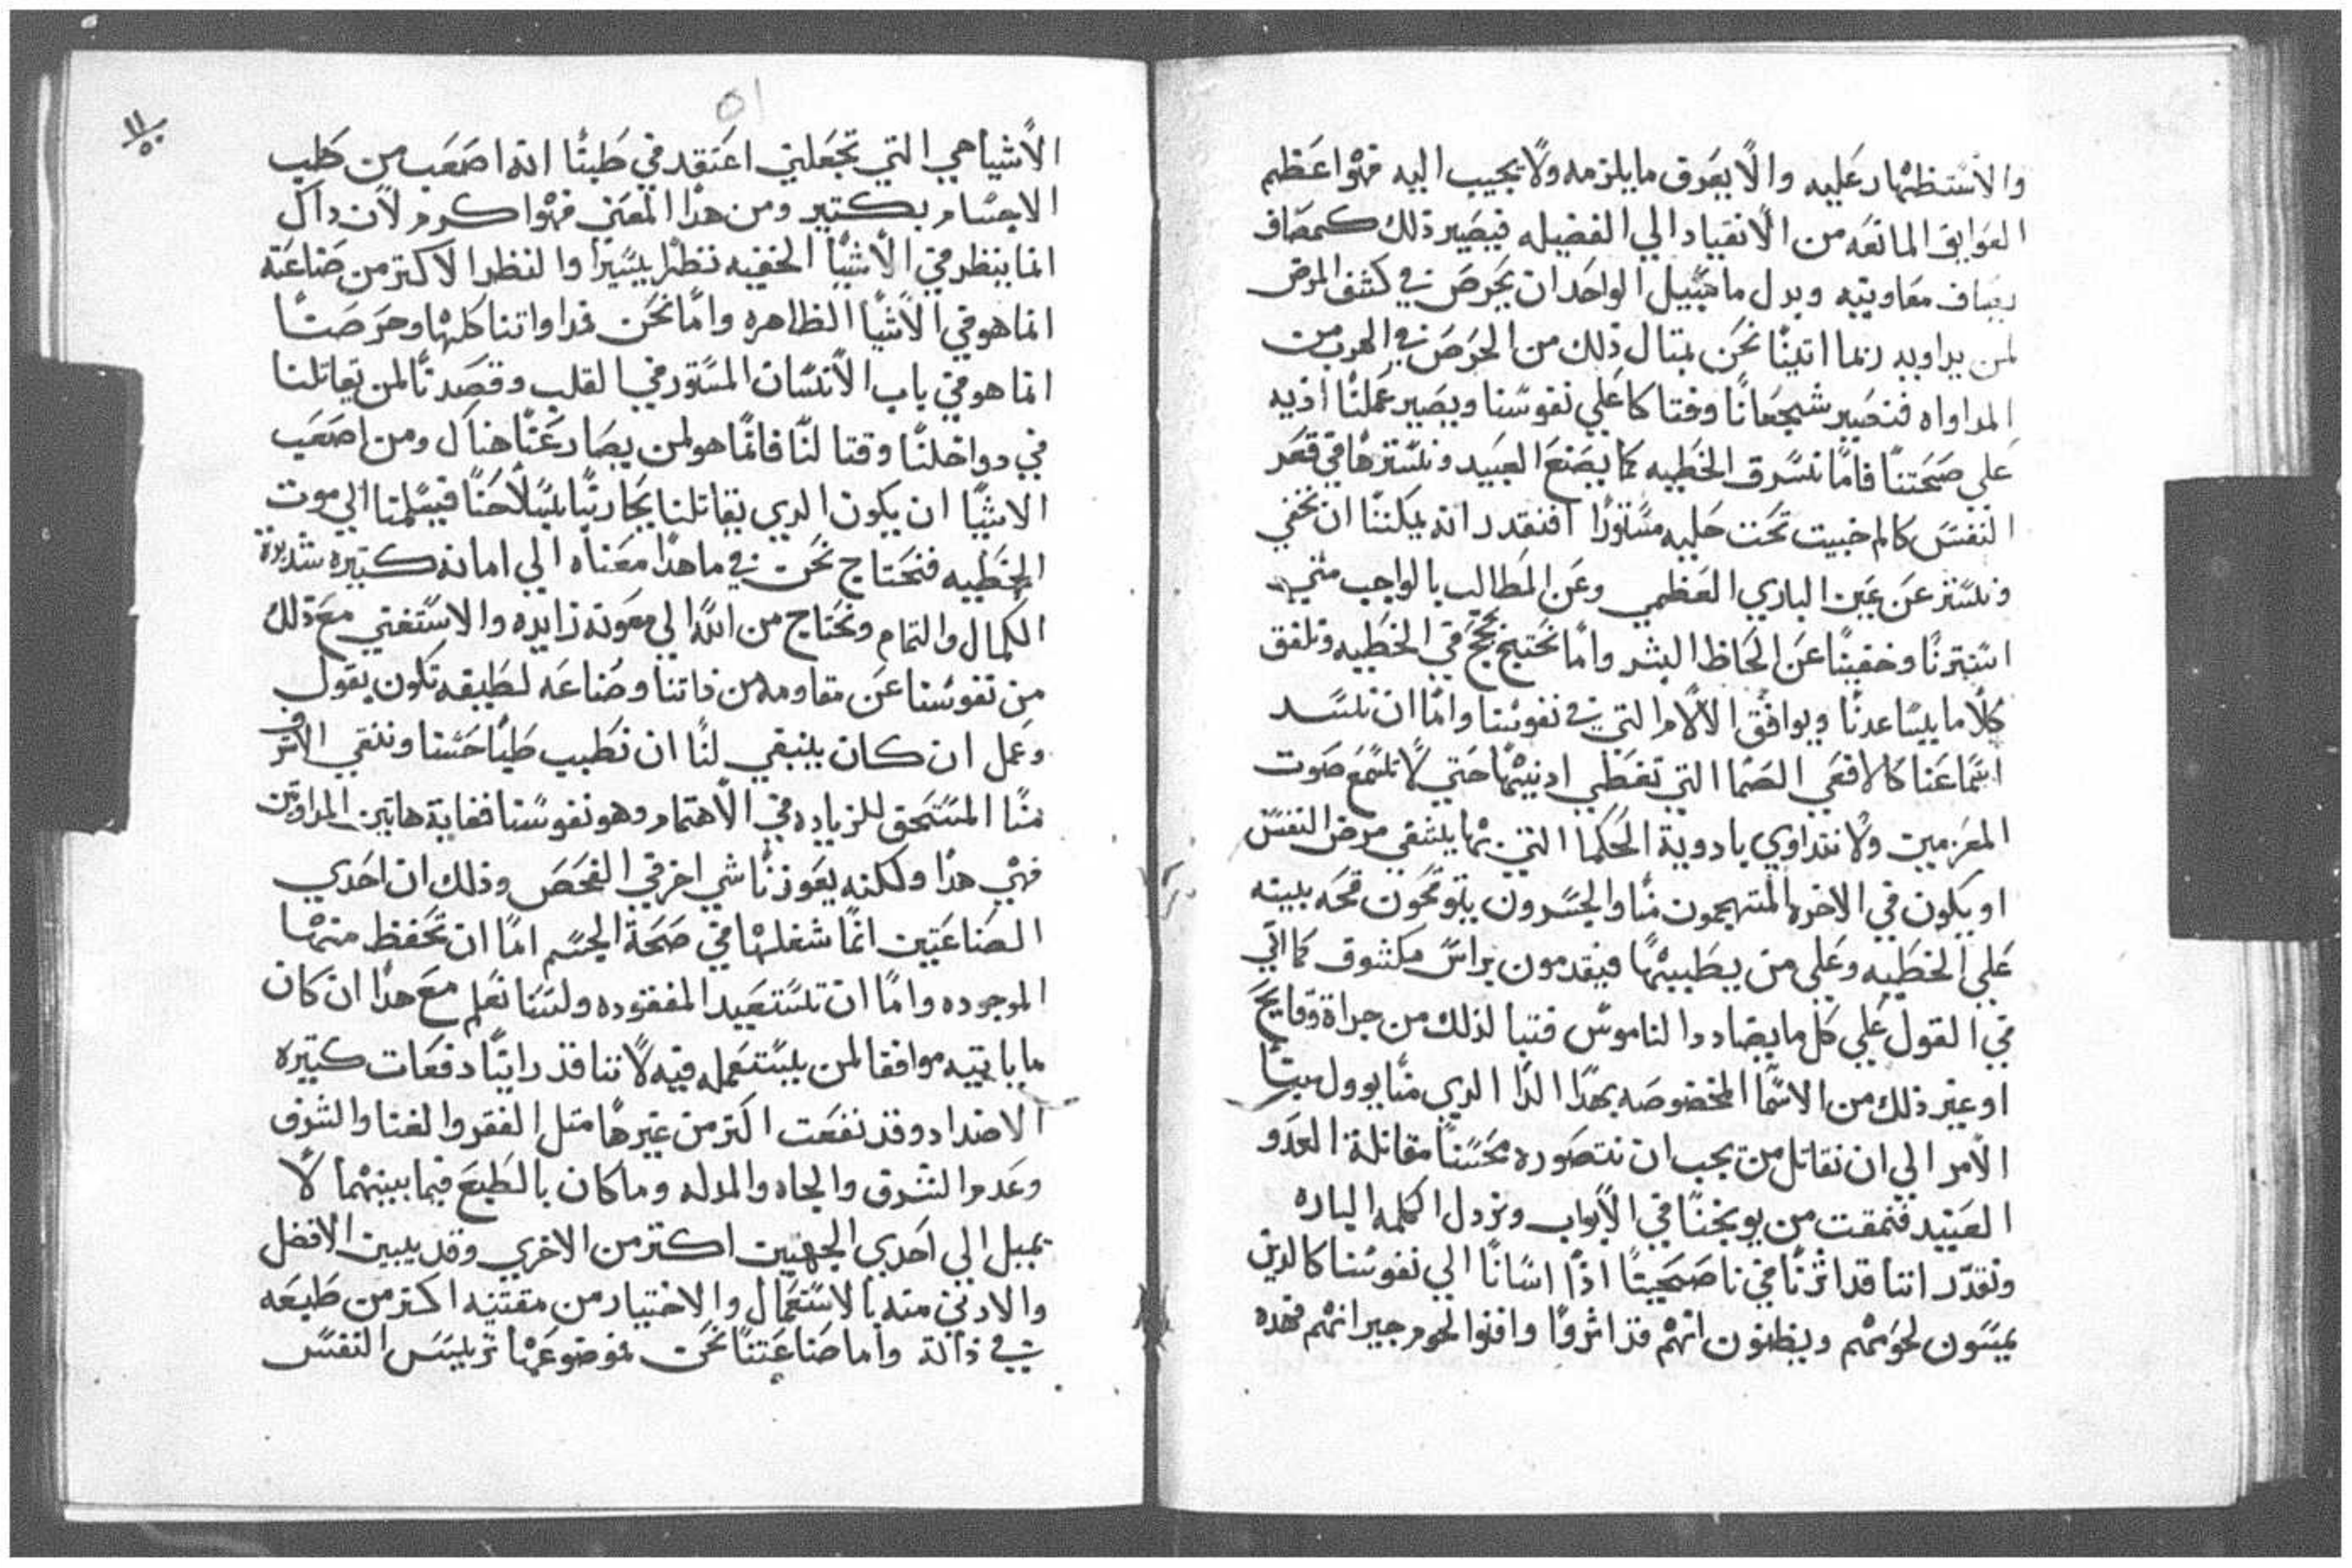 والاستظهار عليه والا يعرق ما يلزمه ولا يجيب اليه فهو اعظم
العوايق المانعه من الانقياد الي الفضيله فيصير ذلك كمصاف
يصاف مقاويته وبدل ما سبيل الواحد ان يحرص في كشف المرض
لمن يداويه ربما اتينا نحن بمثال ذلك من الحرص في الهرب من
المداواه فنصير شجعانا وفتاكا علي نفوسنا ويصير عملنا اذيه
علي صحتنا فاما نسرق الخطيه كما يصنع العبيد ونسترها في قعر
النفس كالم خبيث تحت حليه مستورا افنقدر انه يمكننا ان نخفي
ونستتر عن عين الباري العظمي وعن المطالب بالواجب متي
استترنا وخفينا عن الحاظ البشر واما نحتج بحجج في الخطيه ونلفق
كلاما يساعدنا ويوافق الالام التي في نفوسنا واما ان نسد
اسماعنا كالافعي الصما التي تغطي ادنيها حتي لا تسمع صوت
المعزمين ولا نتداوي بادوية الحكما التي بها يشفي مرض النفس
او يكون في الاخره المتهجمون منا والجسرون يتوقحون قحه بينه
علي الخطيه وعلي من يطبيها فيقدمون براس مكشوف كما اتي
في القول علي كل ما يضادد الناموس فتبا لذلك من جراة وقايح
او غير ذلك من الاسما المخصوصه بهذا الدا الدي منا يوول بنا
الامر الي ان نقاتل من يجب ان نتصوره محسنا مقاتلة العدو
العتيد فنمقت من يوبخنا في الابواب ونردل الكلمه الباره
ونقدر اننا قد اثرنا في ناصحينا اذا اسانا الي نفوسنا كالدين
يمسون لحومهم ويظنون انهم قد اثروا وافنوا لحوم جيرانهم فهده
٥١
الاشيا هي التي تجعلني اعتقد في طبنا انه اصعب من طب
الاجسام بكتير ومن هدا المعني فهو اكرم لان داك
انما ينظر في الاشيا الخفيه نظرا يسيرا والنظر الاكتر من صناعته
انما هو في الاشيا الظاهره واما نحن فمداواتنا كلها وحرصنا
انما هو في باب الانسان المستور في القلب وقصدنا لمن يقاتلنا
في دواخلنا وقتالنا فانما هو لمن يصارعنا هناك ومن اصعب
الاشيا ان يكون الدي يقاتلنا يحاربنا بسلاحنا فيسلمنا الي موت
الخطيه فنحتاج نحن في ما هدا معناه الي امانه كتيره شديدة
الكمال والتمام ونحتاج من الله الي معونة زايده والاستغني مع ذلك
من نفوسنا عن مقاومه من داتنا وصناعه لطيفه تكون بقول
وعمل ان كان ينبغي لنا ان نطبب طبا حسنا وننقي الاشرف
منا المستحق للزياده في الاهتمام وهو نفوسنا فغاية هاتين المداواتين
فهي هدا ولكنه يعوزنا شي اخر في الفحص وذلك ان احدي
الصناعتين انما شغلها في صحة الجسم اما ان تحفظ منها
الموجوده واما ان تستعيد المفقوده ولسنا نعلم مع هدا ان كان
ما ياتيه موافقا لمن يستعمله فيه لاننا قد راينا دفعات كتيره
الاضداد وقد نفعت اكتر من غيرها متل الفقر والغنا والشرف
وعدم الشرف والجاه والمدله وما كان بالطبع فيما بينهما لا
يميل الي احدي الجهتين اكتر من الاخري وقد يبين الافضل
والادني منه بالاستعمال والاختيار من مقتنيه اكتر من طبعه
في ذاته واما صناعتنا نحن فموضوعها ترييس النفس